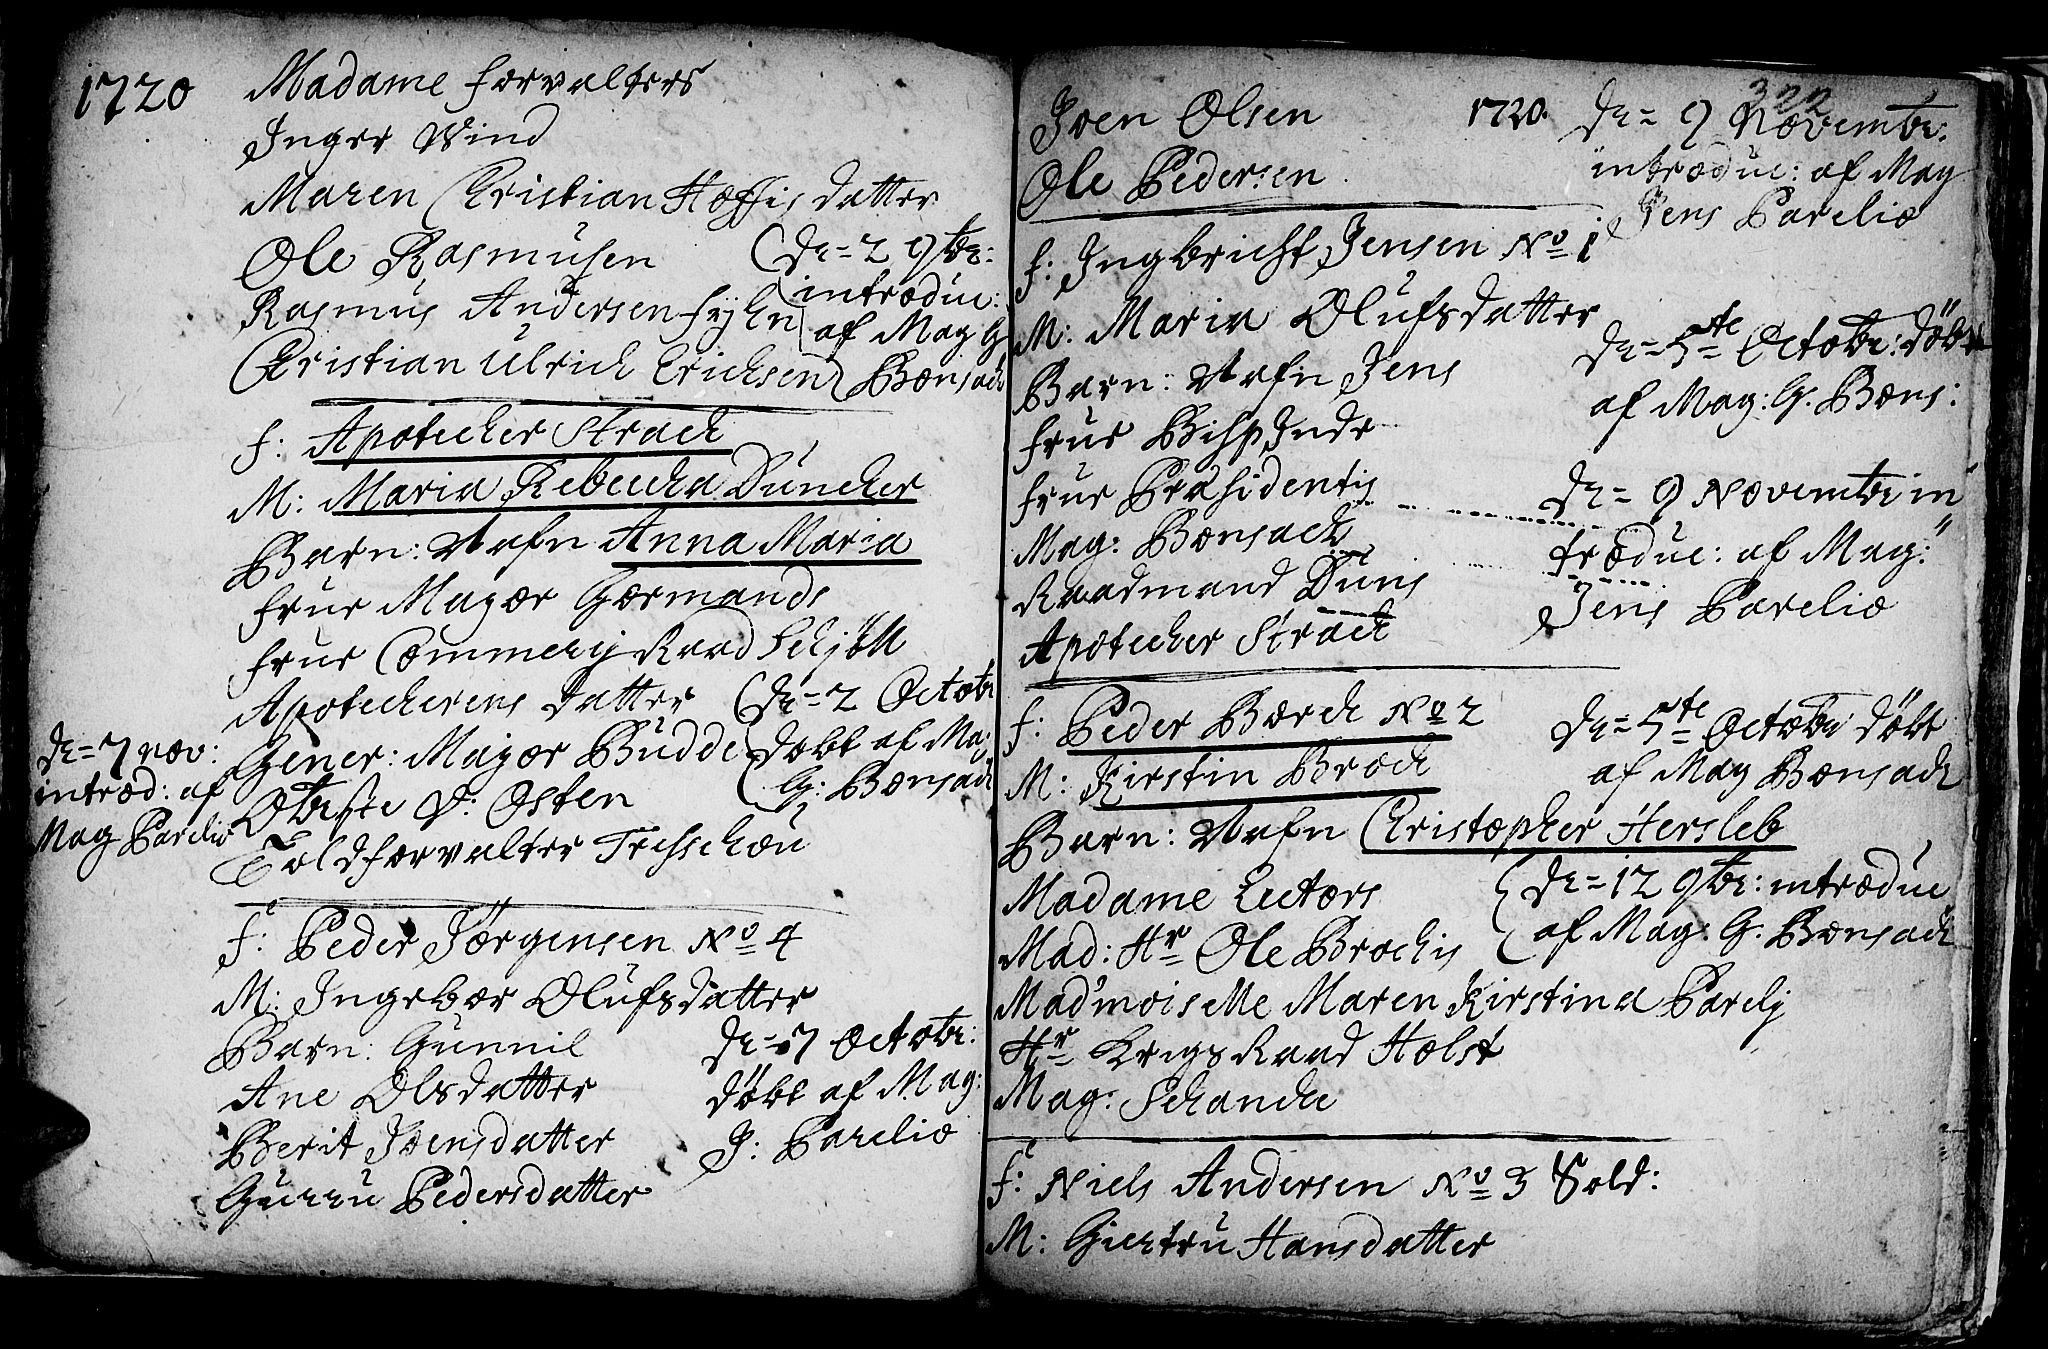 1720
Madame forvalters
Inger Wind
Maren Christian Hoffis datter
Ole Rasmusen
Rasmus Andersen fyhn
Christian Ulrich Erichsen
d: 2 9br:
introduc:
af Mag G
Bonsach
f: Apotecher Strach
M: Maria Rebecha Duncher
Barn: Nafn Anna Maria
frue Major Gormands
frue Commercij Raad Schjøll
Apothecherens datter
Gener: Major Budde
Oberste v: Osten
Toldforvalter Treschou
d: 2 Octobr
døbt af Ma:
G: Bonsach
d: 7 nov:
introd: af
Mag Parelio
f: Peder Jørgensen No 4
M: Ingebor Olufsdatter
Barn: Gunnil
Ane Olsdatter
Berit Joensdatter
Gurru Pedersdatter
d: 7 Octobr:
døbt af Mag:
J: Parelio
322
1720.
Joen Olsen
Ole Pedersen
d: 9 Novembr:
introduc: af Mag
Jens Parelio
f: Ingbricht Jensen No 1
M: Maria Olufsdatter
Barn: Nafn Jens
frue Bisp
frue Præsidentis
Mag: Bonsach
Raadmand Duus
Apotecher Strach
d: 5te Octobr: døbt
af Mag: G. Bons:
d: 9 Novembr in
troduc: af Mag:
Jens Parelio
f: Peder Borch No 2
M: Kirstin Broch
Barn: Nafn Christopher Hersleb
Madame Lectors
Mad: Hr Ole Brochis
Mad'moiselle Maren Kirstina Parelj
Hr Krigs Raad Holst
Mag: Schanche
d: 5te Octobr døbt
af Mag Bonsach
d: 12 9br: introduc
af Mag: G. Bonsach
f: Niels Andersen No 3 Sold:
M: Giertru Hansdatter